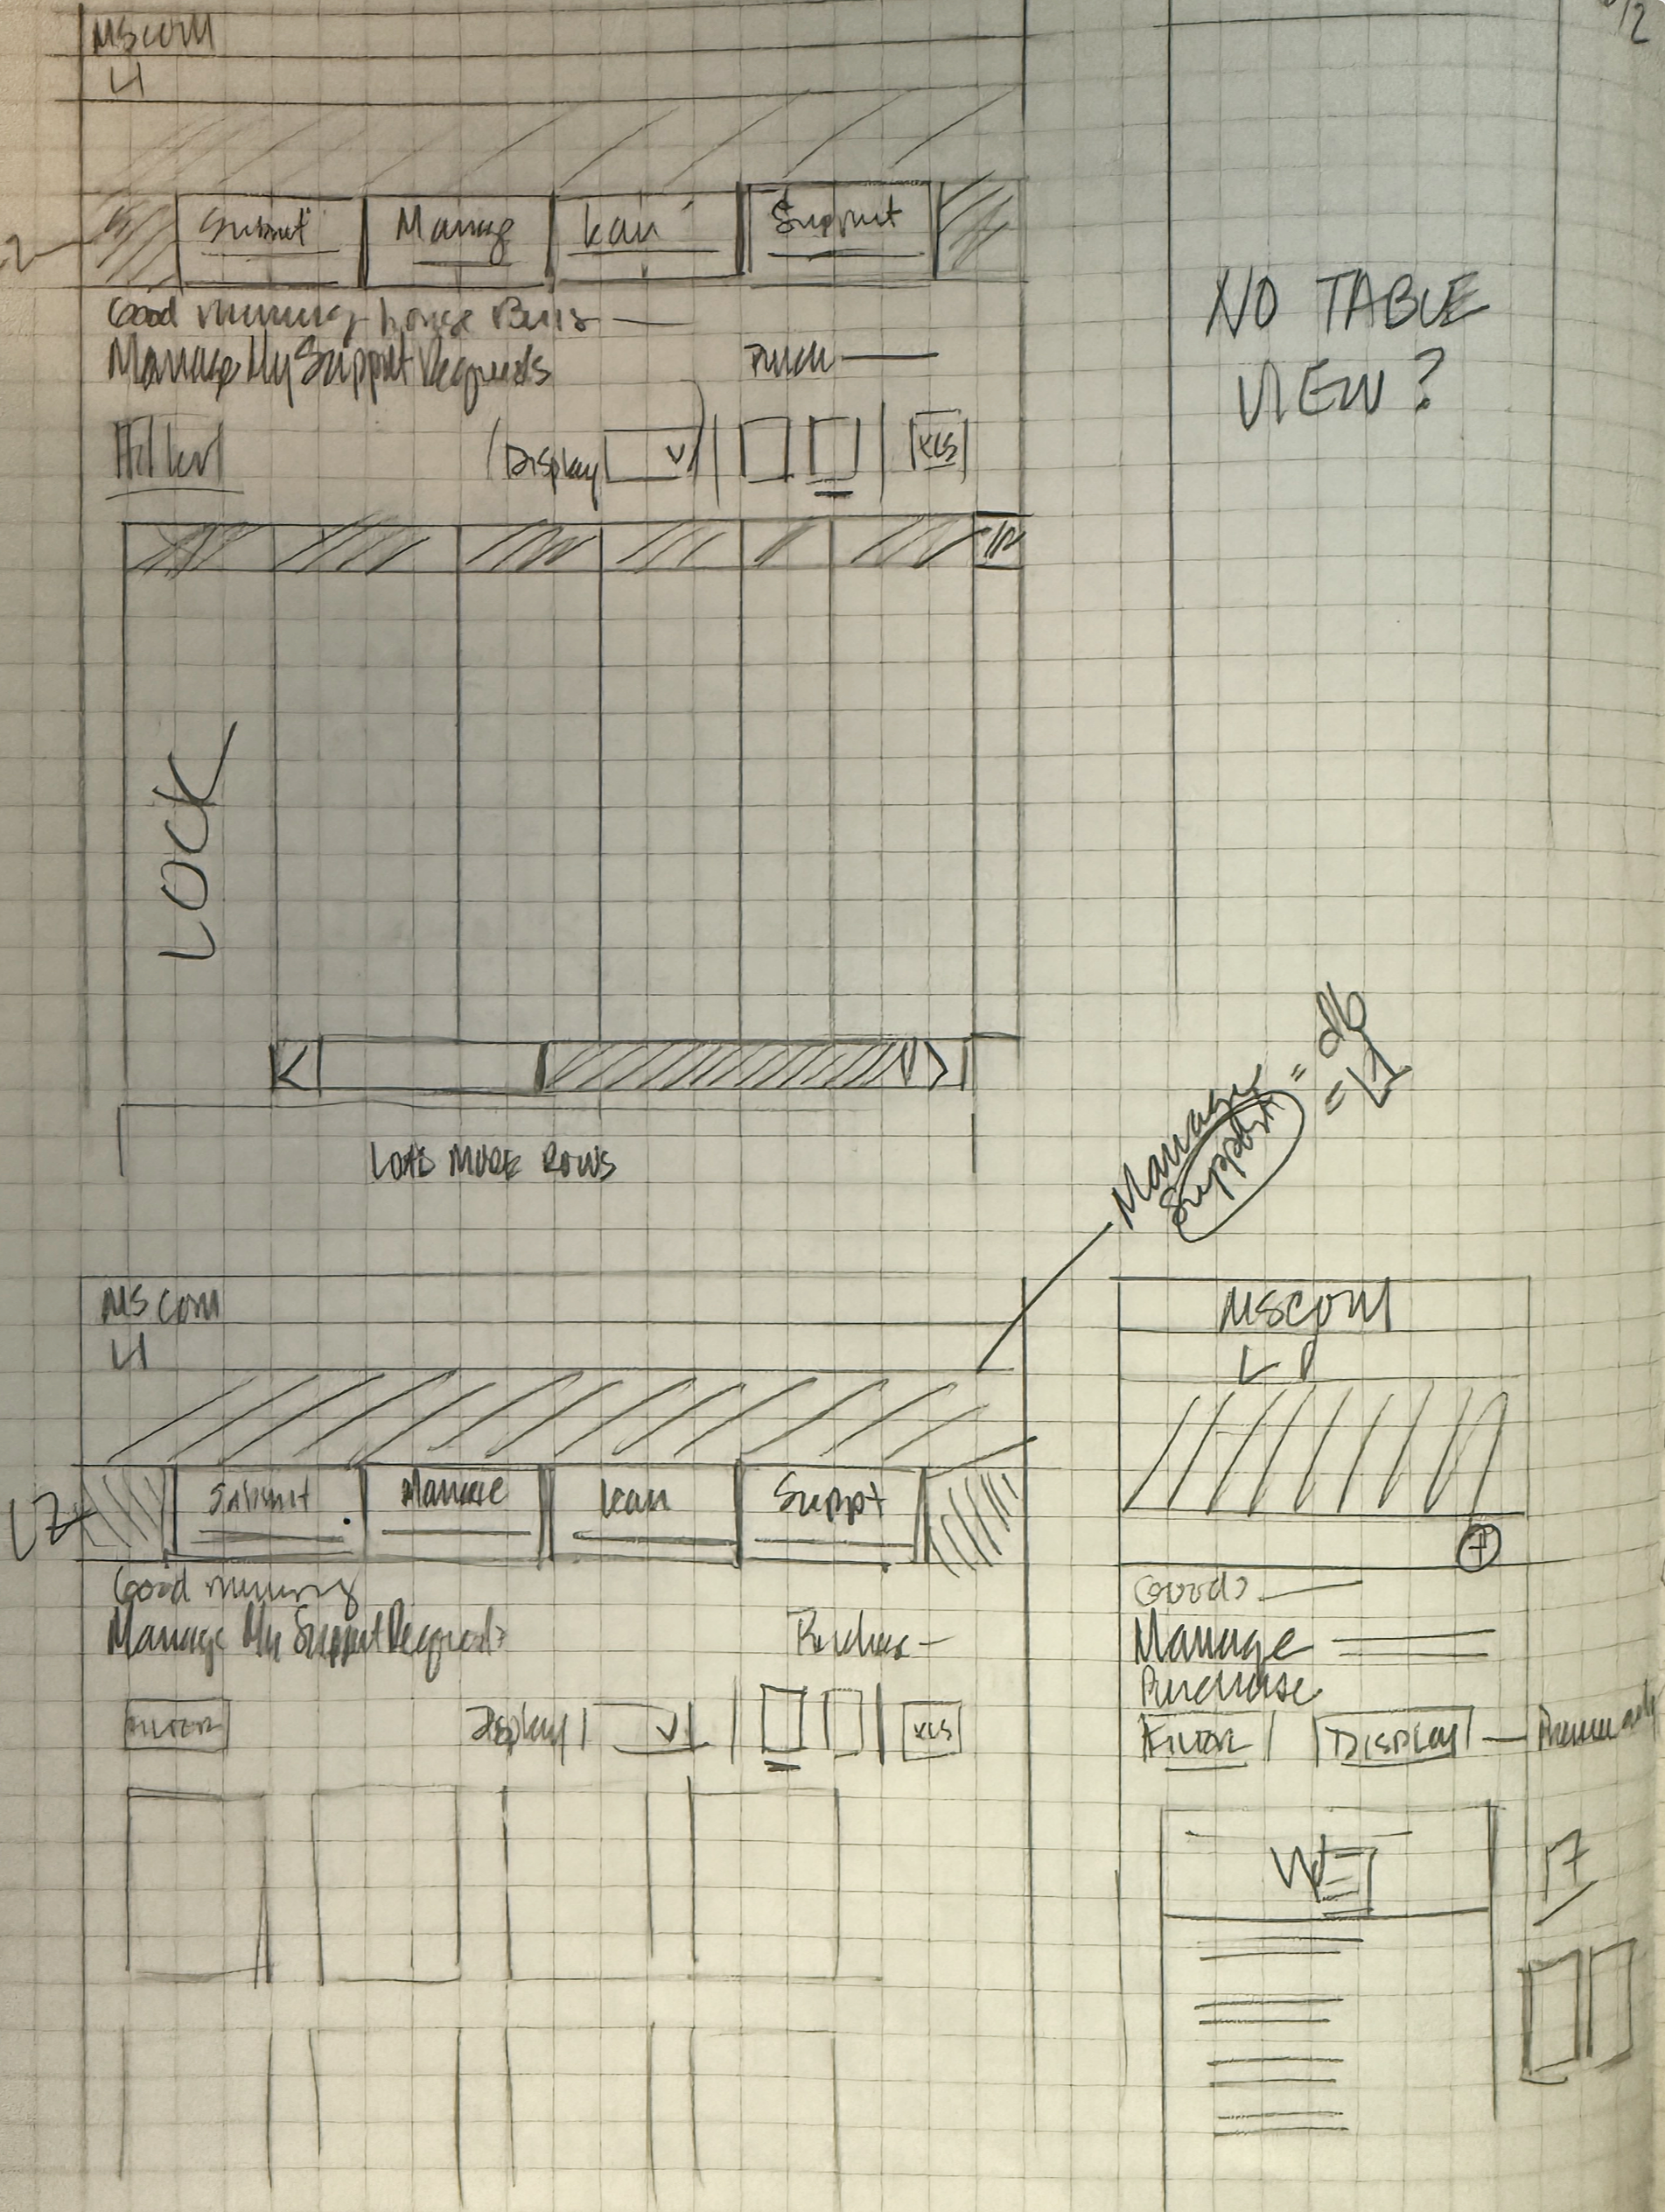 MSCOM
L1
Submit Manage Learn Support
Good morning
Manage My Support Requests
Filter Display XLS
LOCK
LOAD MORE ROWS
NO TABLE
VIEW?
Manage
Support
= L1
MSCOM
L1
L2
Submit Manage Learn Support
Good morning
Manage My Support Requests Purchase
FILTER Display XLS
MSCOM
+
Good
Manage
Purchase
FILTER DISPLAY